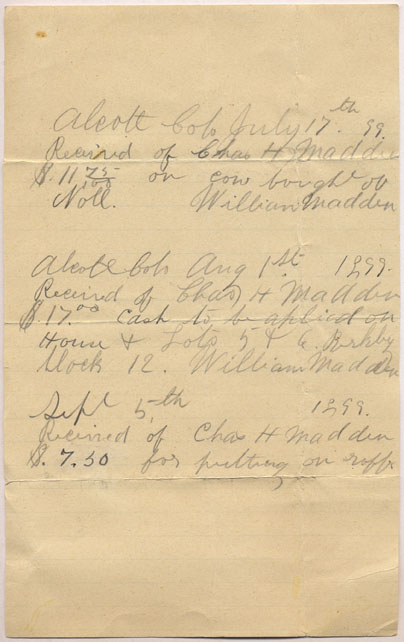 Alcott Colo July 17th 99.
Received of Chas H Madden
$.11 75/100 on cow bought ob
Noll. William Madden
Alcott Colo Aug 1st. 1899.
Received of Chas H Madden
$17.00 Cash to be aplied on
House & Lots 5 &
block 12. William Madden
Sept 5th 1899.
Received of Chas H Madden
$.7.50 for putting on